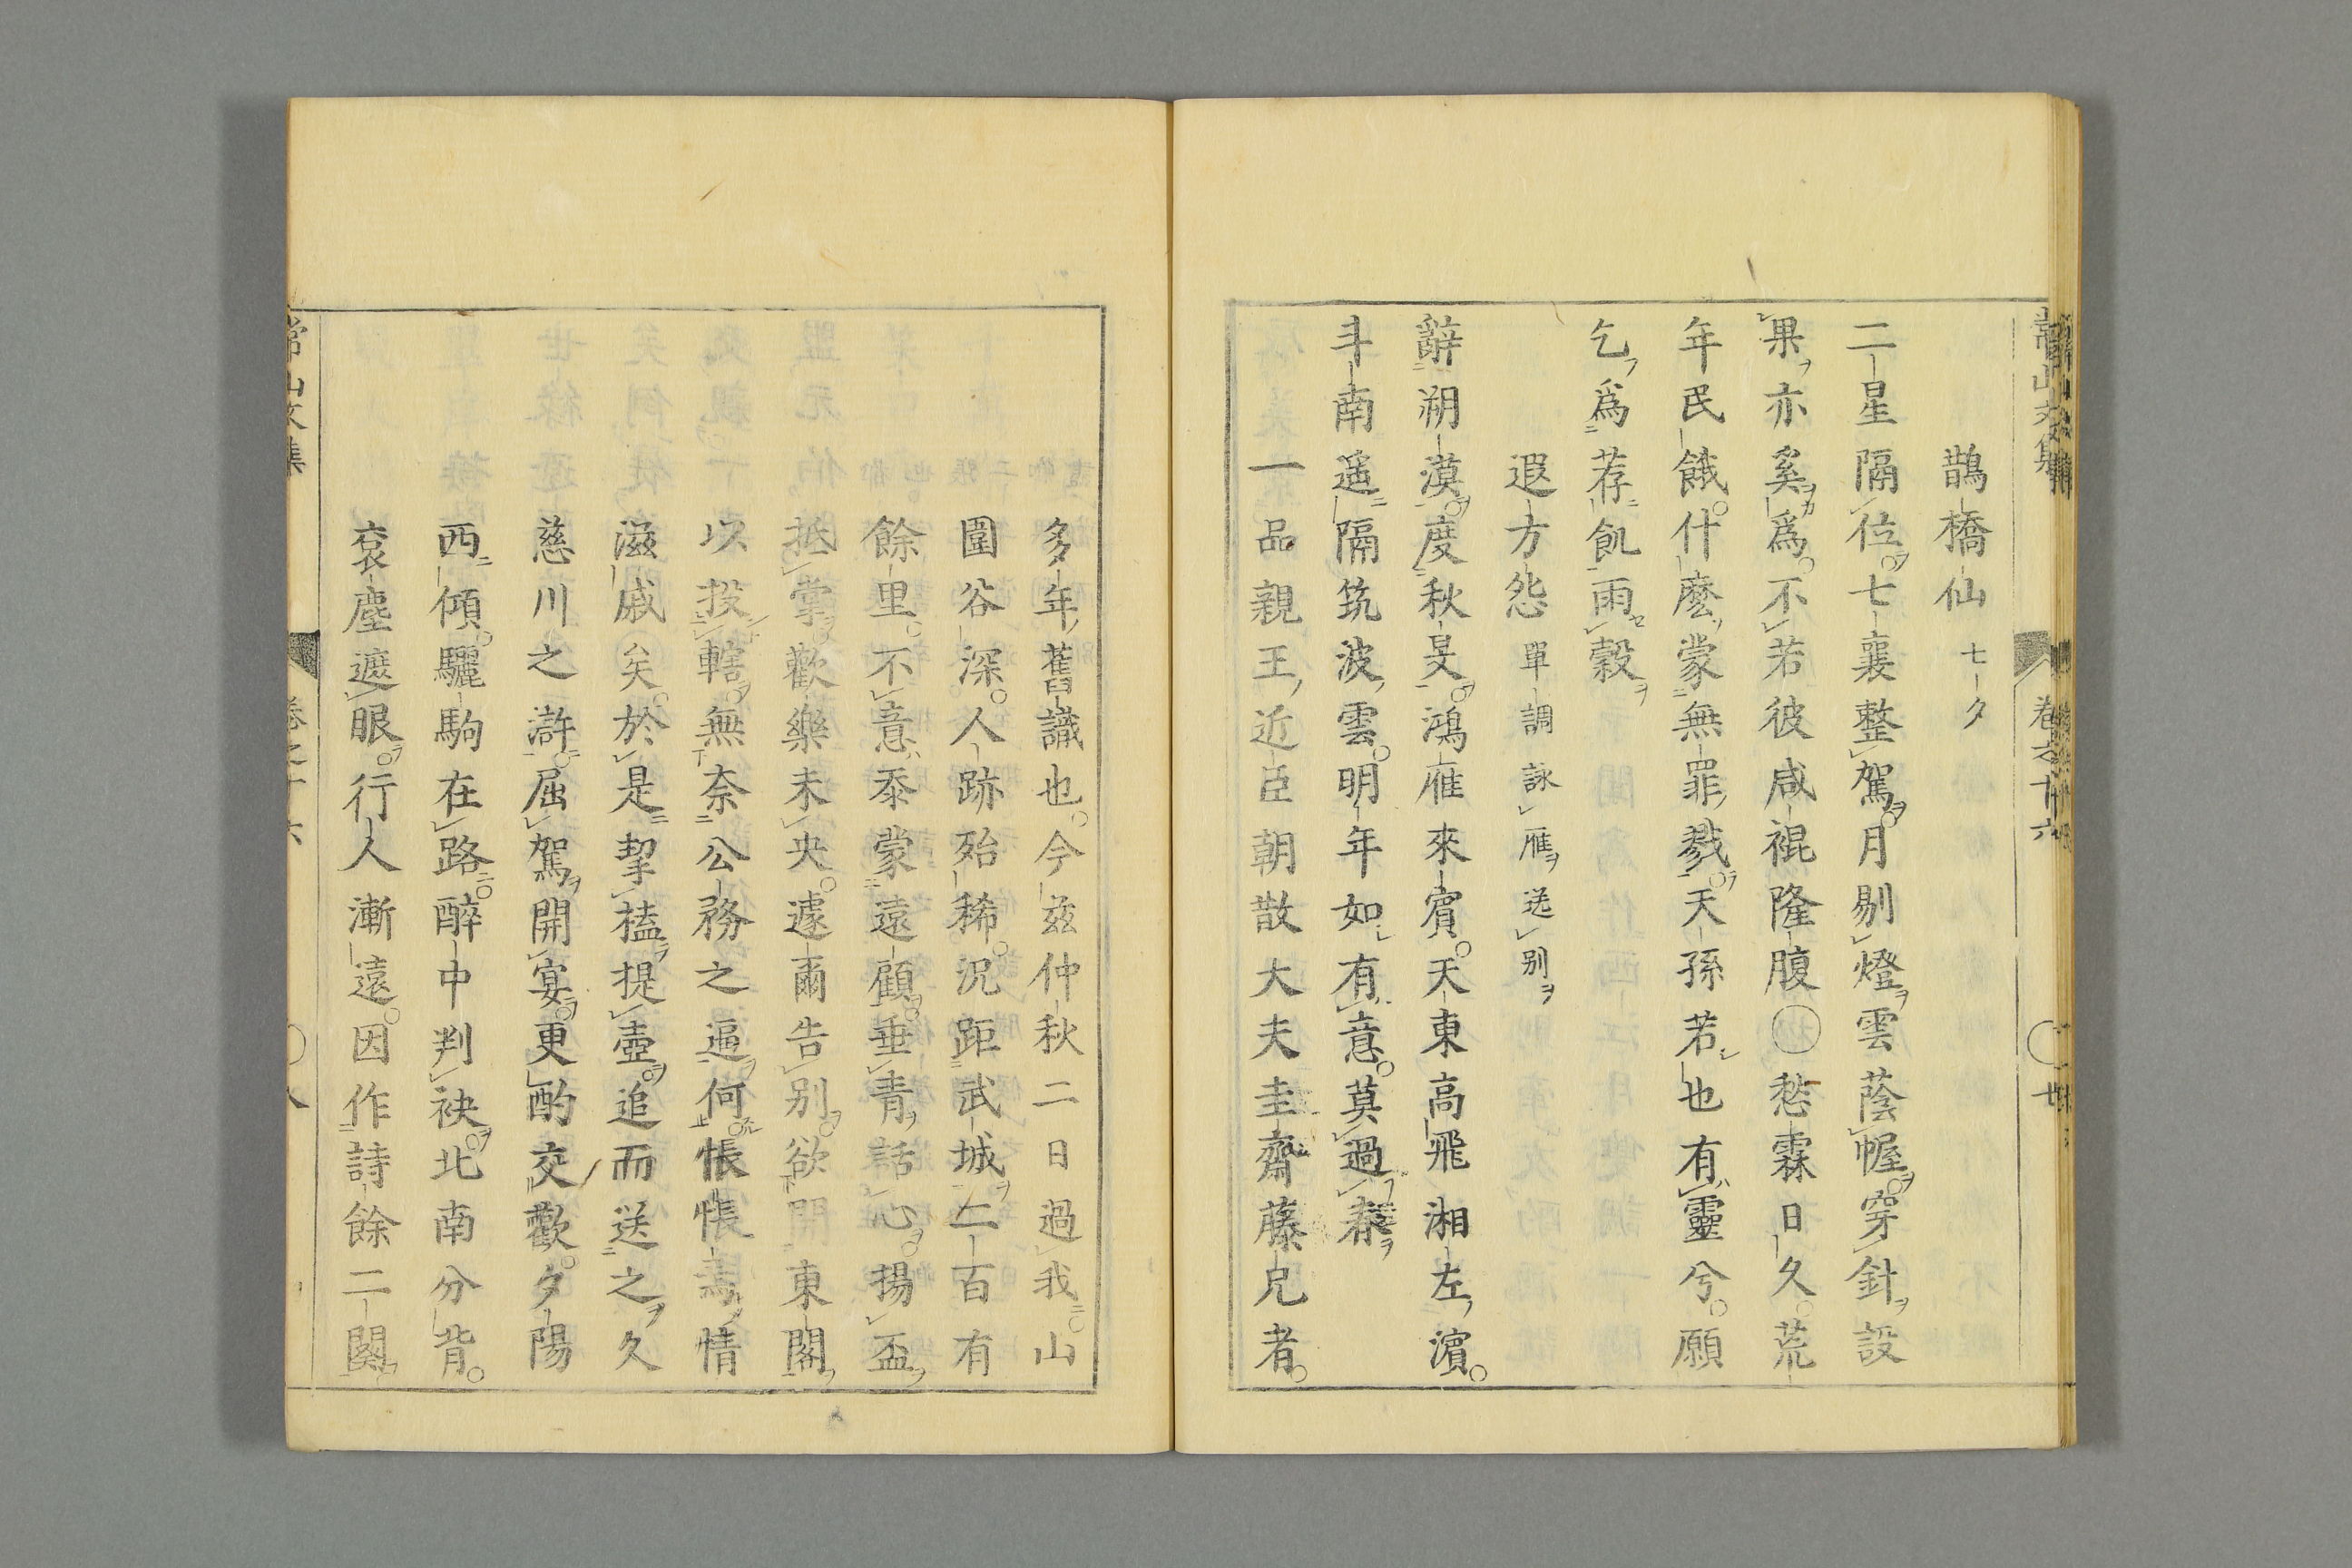 常山文集 卷之十六 廿
鵲橋仙 七夕
二星隔位七襄整駕月剔燈雲蔭幄穿針設
果亦奚爲不若彼咸裩隆腹 愁霖日久荒
年民餓什麽蒙無罪戮天孫若也有靈兮願
乞爲荐飢雨穀
遐方怨 單調 詠雁送別
辭朔漠度秋旻鴻雁來賓天東高飛湘左濱
斗南遥隔筑波雲明年如有意莫過春
一品親王近臣朝散大夫圭齋藤兄者
多年舊識也今茲仲秋二日過我山
圍谷深人跡殆稀況距武城二百有
餘里不意忝蒙遠顧垂青話心揚盃
抵掌歡樂未央遽爾告別欲開東閣
以投轄無奈公務之逼何悵悵焉情
滋戚矣於是挈榼提壺追而送之久
慈川之滸屈駕開宴更酌交歡夕陽
西傾驪駒在路醉中判袂北南分背
衮塵遮眼行人漸遠因作詩餘二闋
常山文集 卷之十六